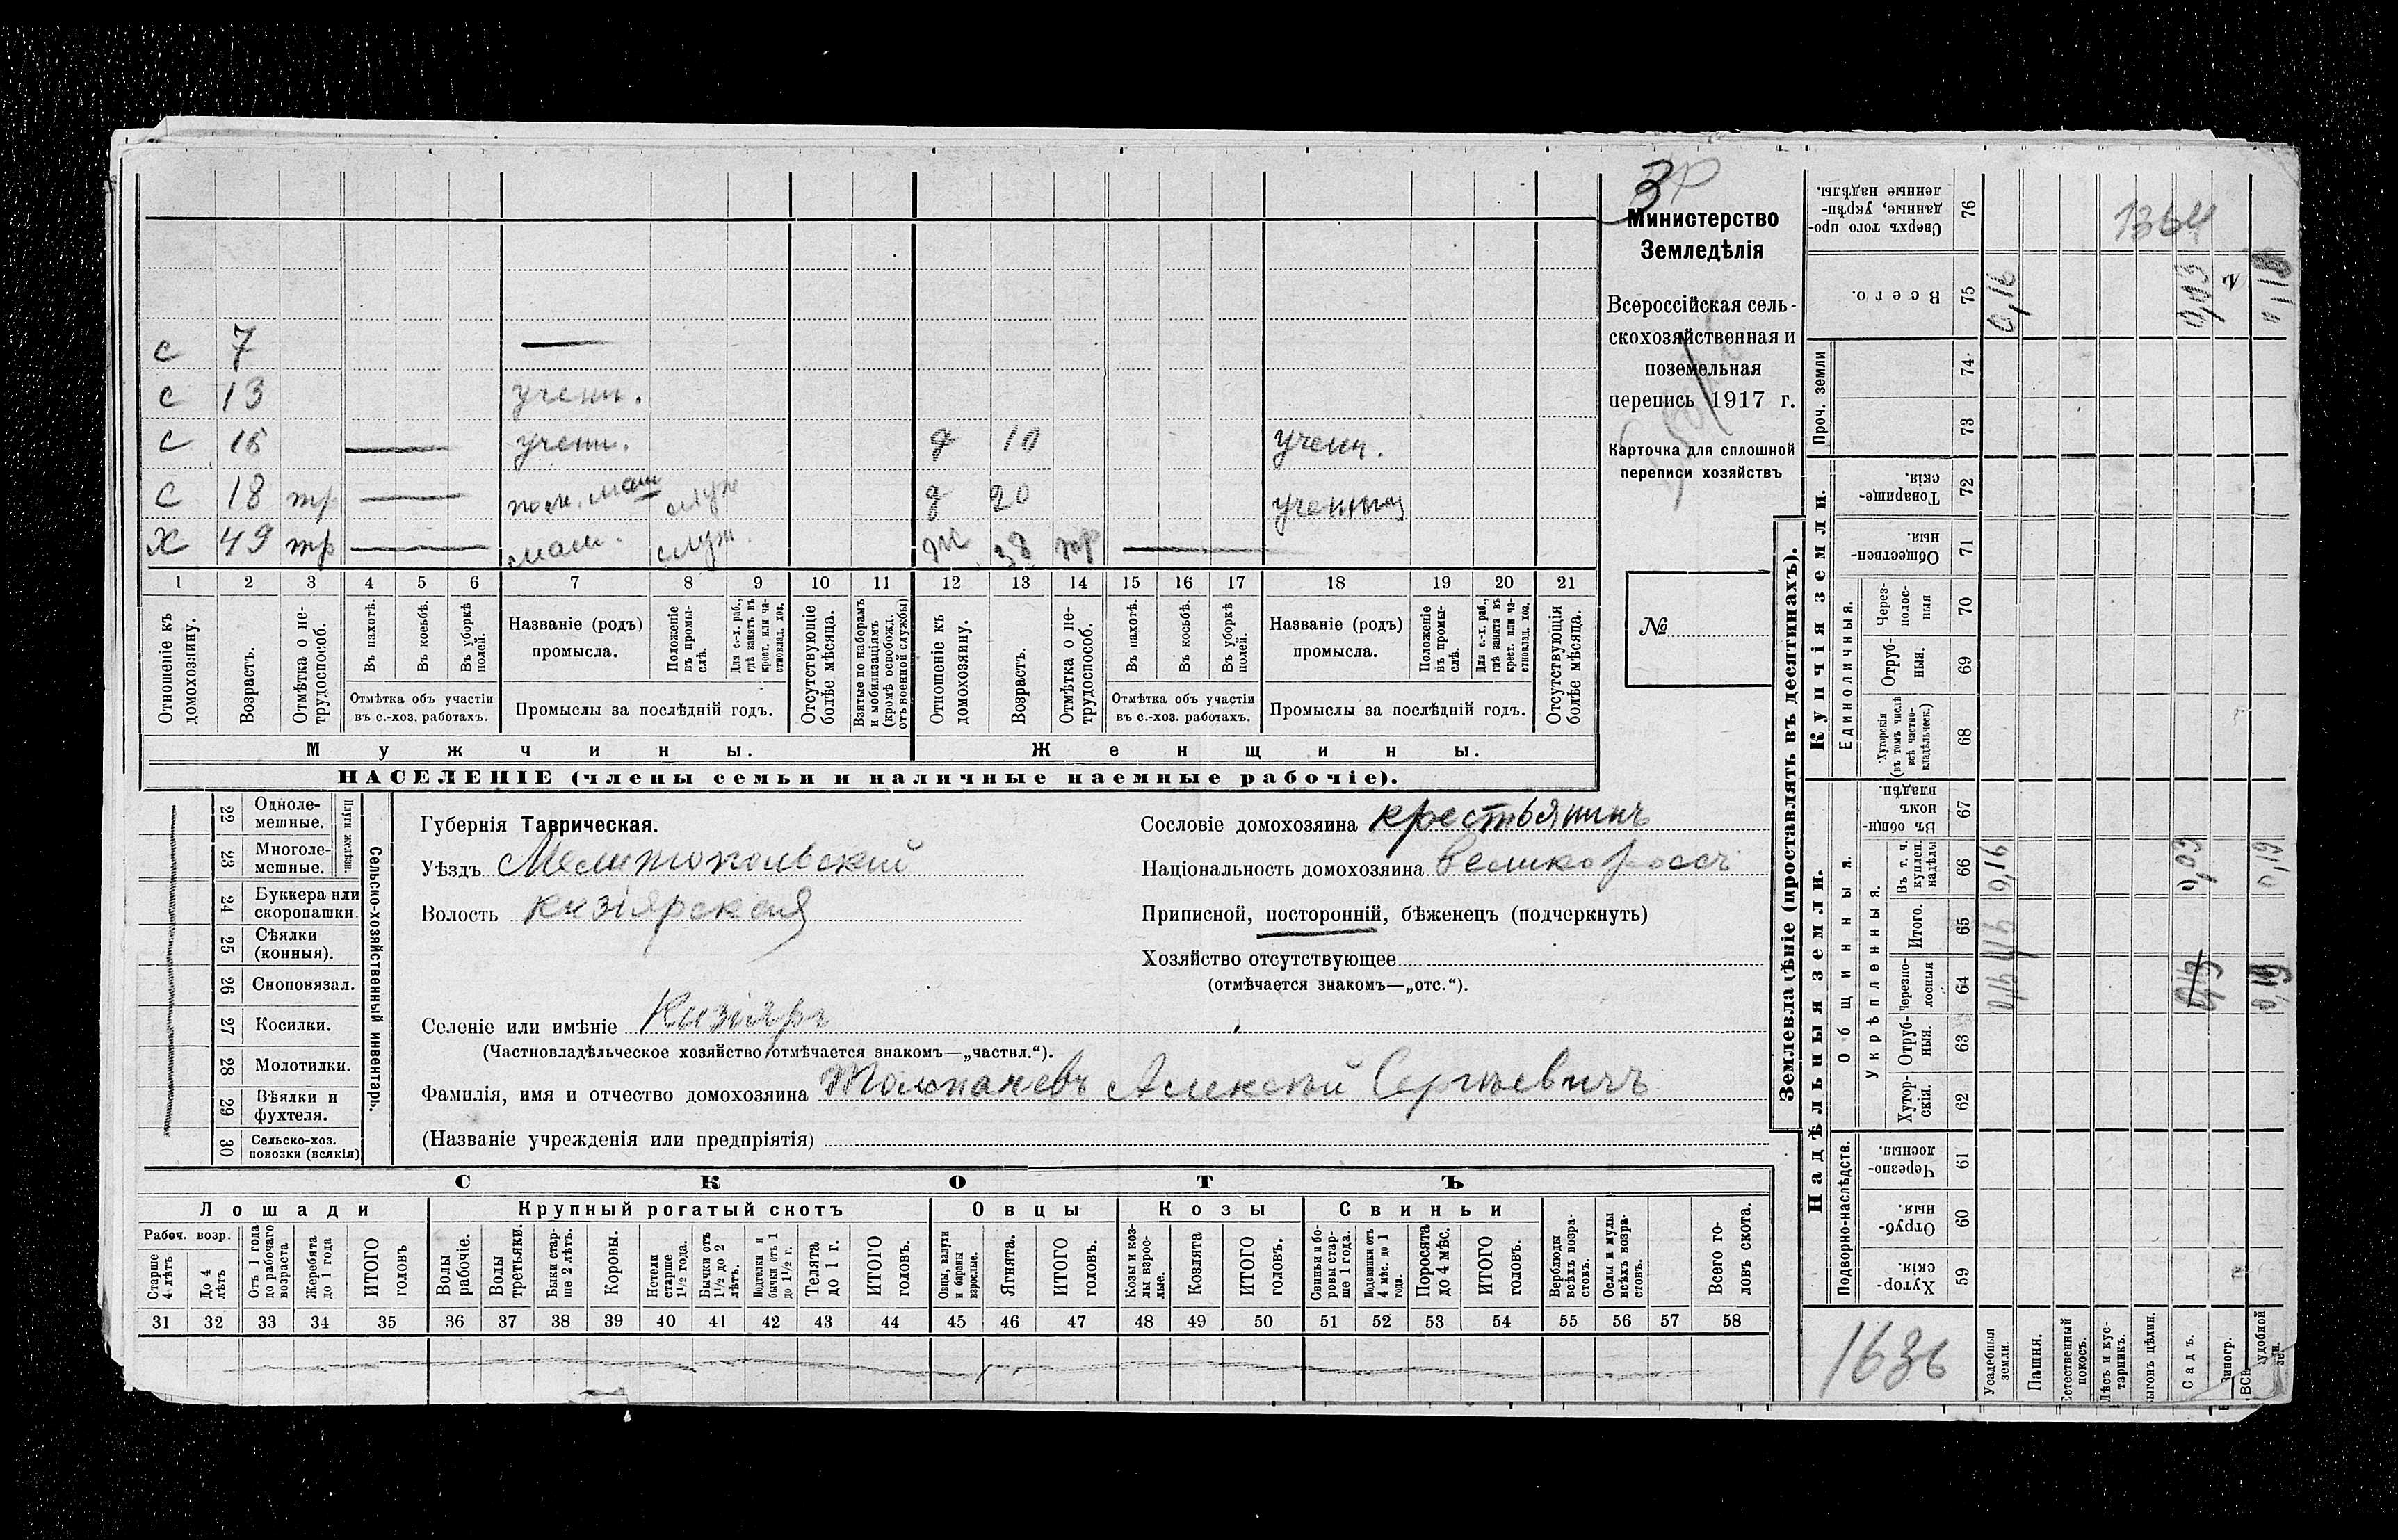 3
1364
Министерство
Земледѣлія
Всероссійская сель-
скохозяйственная и
поземельная
перепись 1917 г.
Карточка для сплошной
переписи хозяйствъ
№
с 7 —
с 13 учени.
с 15 — учени. д 10 учени.
с 18 тр — пом. маш служ д 20 учениц
х 49 тр — маш. служ. ж 38 тр —
1 2 3 4 5 6 7 8 9 10 11 12 13 14 15 16 17 18 19 20 21
Отношеніе къ домохозяину.
Возрастъ.
Отмѣтка о не-трудоспособ.
Въ пахотѣ.
Въ косьбѣ.
Въ уборкѣ полей.
Отмѣтка объ участіи
въ с.-хоз. работахъ.
Названіе (родъ)
промысла.
Положеніе въ промы-слѣ.
Для с.-х. раб., гдѣ занятъ въ крест. или ча-стновлад. хоз.
Промыслы за послѣдній годъ.
Отсутствующіе болѣе мѣсяца.
Взятые по наборамъ и мобилизаціямъ (кромѣ освобожд. отъ военной службы)
Отношеніе къ домохозяину.
Возрастъ.
Отмѣтка о не-трудоспособ.
Въ пахотѣ.
Въ косьбѣ.
Въ уборкѣ полей.
Отмѣтка объ участіи
въ с.-хоз. работахъ.
Названіе (родъ)
промысла.
Положеніе въ промы-слѣ.
Для с.-х. раб., гдѣ занята въ крест. или ча-стновлад. хоз.
Промыслы за послѣдній годъ.
Отсутствующія болѣе мѣсяца.
Мужчины. Женщины.
НАСЕЛЕНІЕ (члены семьи и наличные наемные рабочіе).
22 Одноле-мешные.
23 Многоле-мешные.
Плуги желѣзн.
24 Буккера или скоропашки.
25 Сѣялки (конныя).
26 Сноповязал.
27 Косилки.
28 Молотилки.
29 Вѣялки и фухтеля.
30 Сельско-хоз. повозки (всякія)
Сельско-хозяйственный инвентарь.
Губернія Таврическая.
Уѣздъ Мелитопольскій
Волость Кизіярская
Селеніе или имѣніе Кизіяръ
(Частновладѣльческое хозяйство отмѣчается знакомъ—„частвл.“).
Фамилія, имя и отчество домохозяина Толмачевъ Алексѣй Сергѣевичъ
(Названіе учрежденія или предпріятія)
Сословіе домохозяина крестьянинъ
Національность домохозяина великороссъ
Приписной, посторонній, бѣженецъ (подчеркнуть)
Хозяйство отсутствующее
(отмѣчается знакомъ—„отс.“).
СКОТЪ
Лошади
Крупный рогатый скотъ
Овцы
Козы
Свиньи
Рабоч. возр.
Старше 4 лѣтъ
До 4 лѣтъ
Отъ 1 года до рабочаго возраста
Жеребята до 1 года
ИТОГО головъ
Волы рабочіе.
Волы третьяки.
Быки стар-ше 2 лѣтъ.
Коровы.
Нетели старше 1½ года.
Бычки отъ 1½ до 2 лѣтъ.
Подтелки и бычки отъ 1 до 1½ г.
Телята до 1 г.
ИТОГО головъ.
Овцы, валухи и бараны взрослые.
Ягнята.
ИТОГО головъ.
Козы и коз-лы взрос-лые.
Козлята
ИТОГО головъ.
Свиньи и бо-ровы стар-ше 1 года.
Подсвинки отъ 4 мѣс. до 1 года.
Поросята до 4 мѣс.
ИТОГО головъ.
Верблюды всѣхъ возра-стовъ.
Ослы и мулы всѣхъ возра-стовъ.
Всего го-ловъ скота.
31 32 33 34 35 36 37 38 39 40 41 42 43 44 45 46 47 48 49 50 51 52 53 54 55 56 57 58
Землевладѣніе (проставлять въ десятинахъ).
Купчія земли.
Надѣльныя земли.
76 Сверхъ того про-данные, укрѣп-ленные надѣлы.
75 Всего. 0,16 0,03 0,19
Проч. земли
74
73
72 Товарище-скія.
71 Обществен-ныя.
Единоличныя.
70 Через-полос-ныя
69 Отруб-ныя.
68 Хуторскія (въ томъ числѣ всѣ частно-владѣльческ.)
Общинныя.
67 Въ общин-номъ владѣн.
Укрѣпленныя.
66 Въ т. ч. куплен. надѣлы 0,16 0,03 0,19
65 Итого.
64 Черезпо-лосныя 0,16 0,03 0,19
63 Отруб-ныя.
62 Хутор-скія.
Подворно-наслѣдств.
61 Черезпо-лосныя.
60 Отруб-ныя.
59 Хутор-скія.
1636
Усадебныя земли.
Пашня.
Естественный покосъ.
Лѣсъ и кус-тарникъ.
ыгонъ цѣлин.
Садъ.
Виногр.
удобной